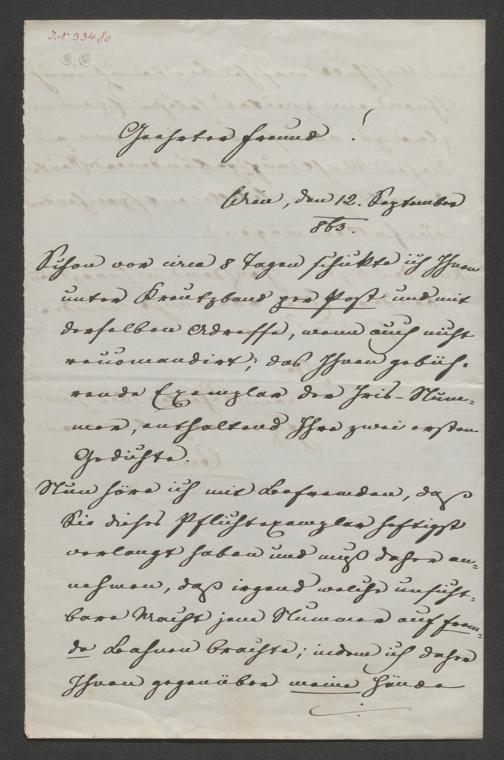 J.N. 33480
Geehrter Freund!
Wien, den 12. September
863.
Schon vor circa 8 Tagen schickte ich Ihnen
unter Kreutzband per Post und mit
derselben Adresse, wenn auch nicht
recomandirt, das Ihnen gebüh-
rende Exemplar der Iris-Num-
mer, enthaltend Ihre zwei ersten
Gedichte.
Nun höre ich mit Befremden, daß
Sie dieses Pflichtexemplar heftigst
verlangt haben und muß daher an-
nehmen, daß irgend welche unsicht-
bare Macht jene Nummer auf frem-
de Bahnen brachte; indem ich daher
Ihnen gegenüber meine Hände